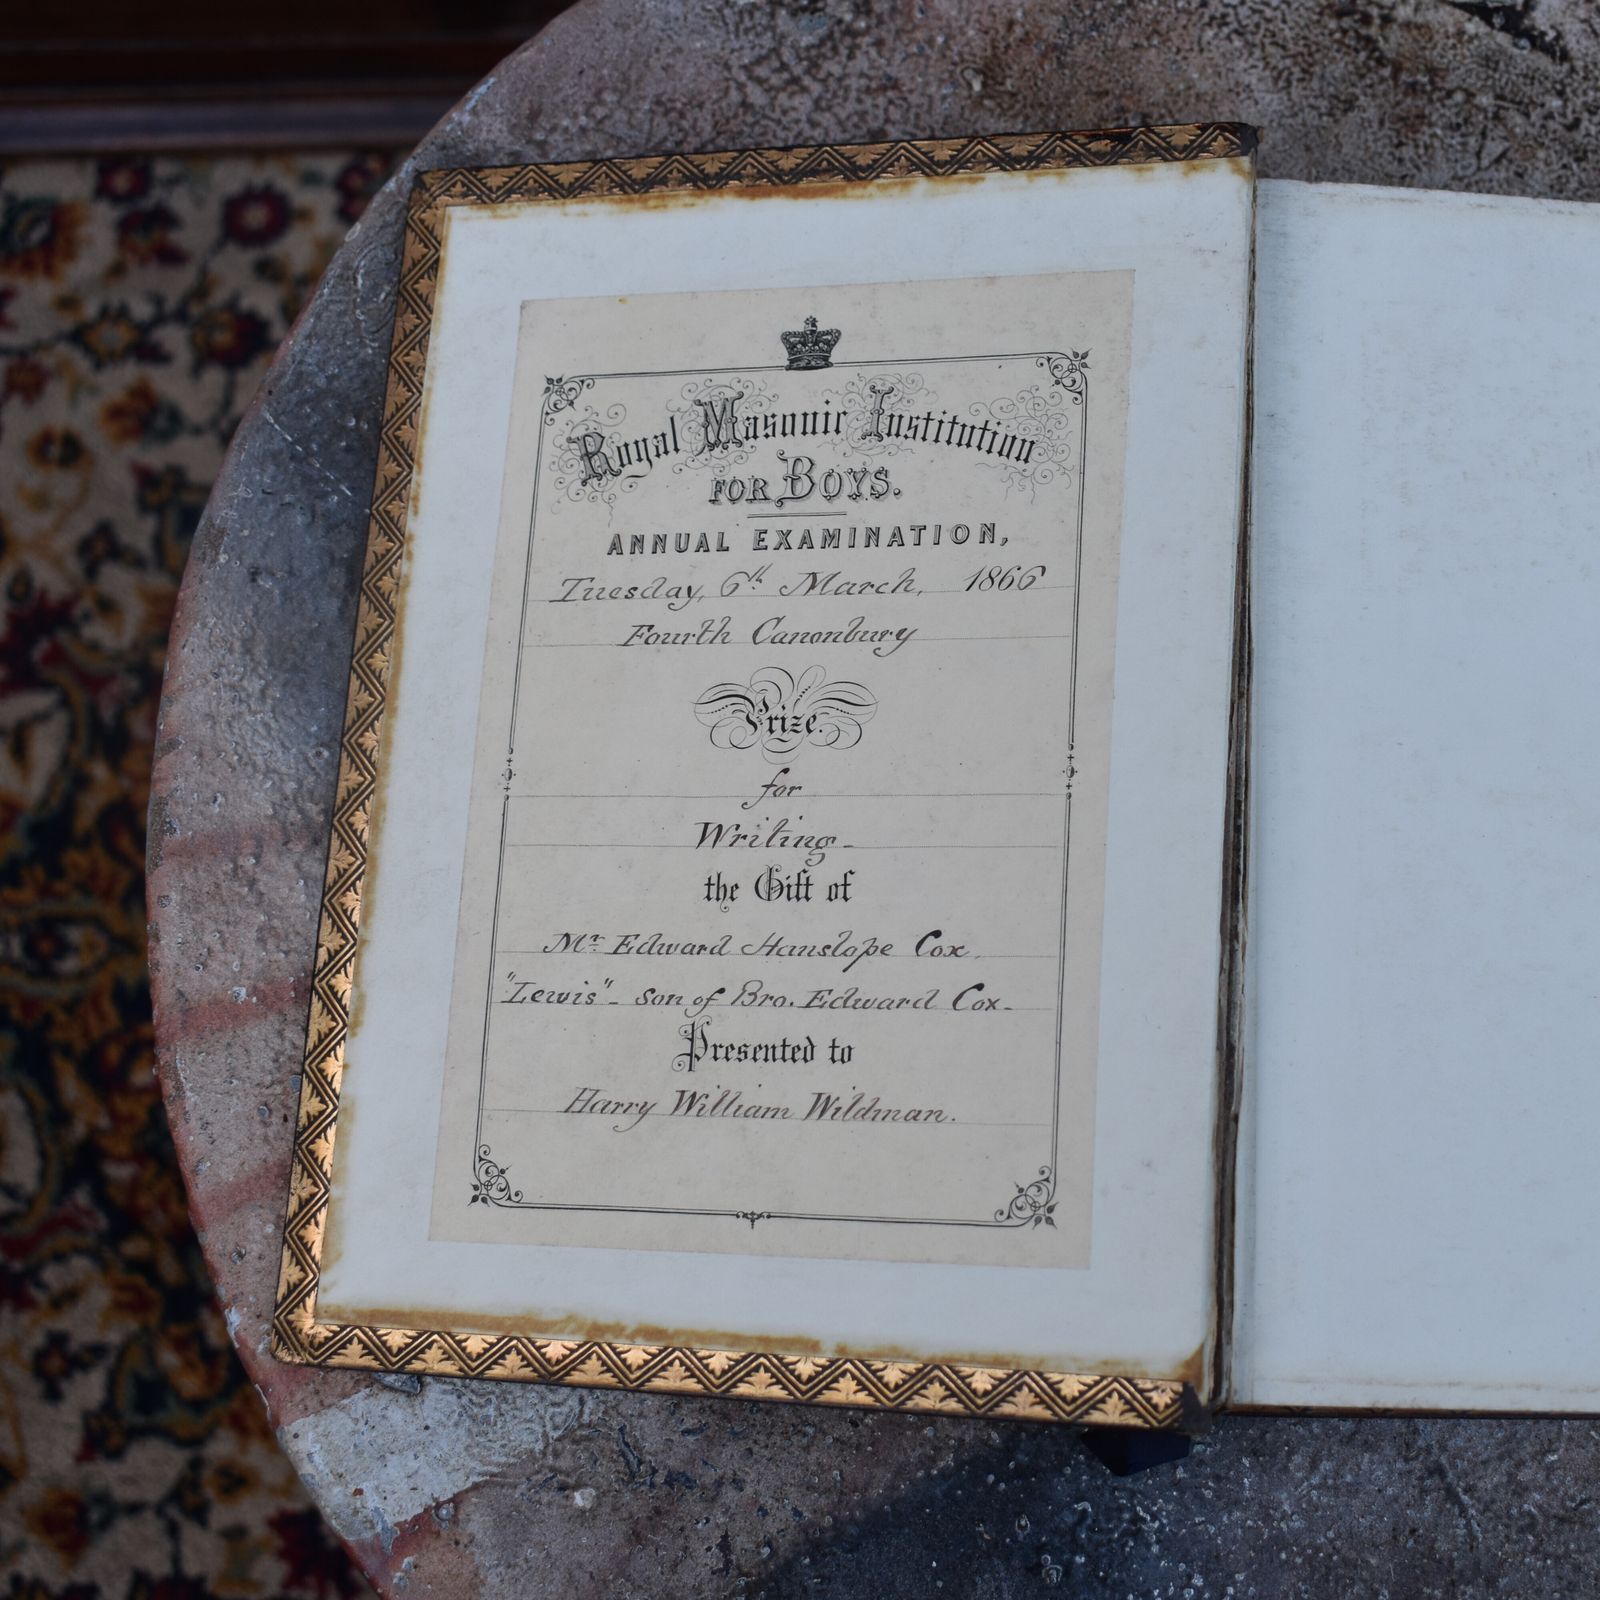 Royal Masonic Institution
FOR BOYS.
ANNUAL EXAMINATION,
Tuesday, 6th. March, 1866
Fourth Canonbury
Prize.
for
Writing -
the Gift of
Mr. Edward Hanslope Cox.
"Lewis" - son of Bro. Edward Cox -
Presented to
Harry William Wildman.